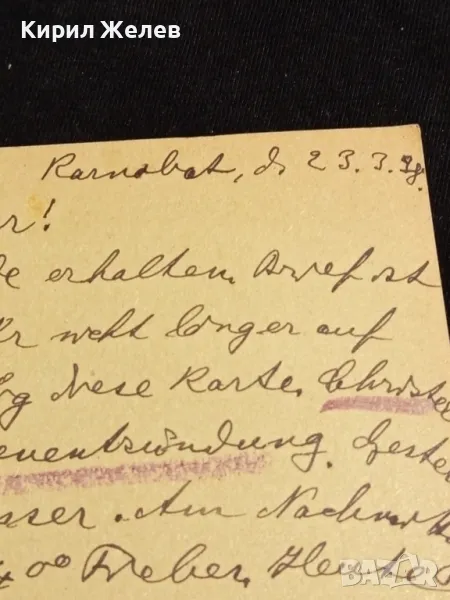 Кирил Желев
Karnobat, d. 23.3.38.
r!
erhalten. Brief ist
nicht länger auf
diese Karte. Christel
enentzündung. Geste
sser. Am Nachmitt
oo Fieber. Heute
bazar.bg